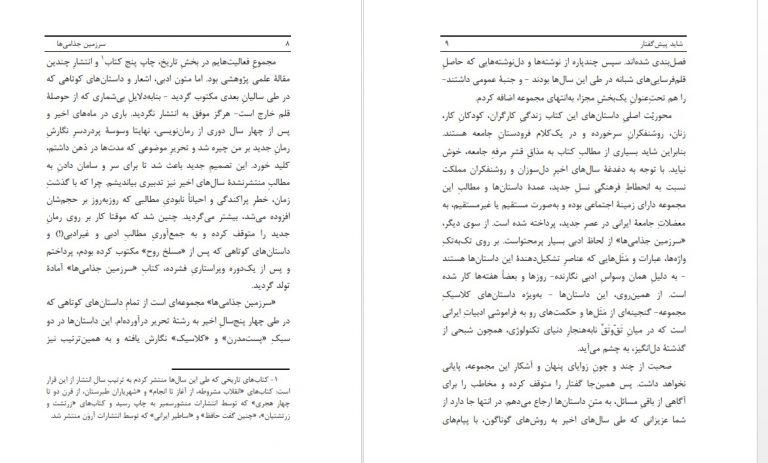 ۸ سرزمین جذامی‌ها
مجموع فعالیت‌هایم در بخش تاریخ، چاپ پنج کتاب۱ و انتشار چندین
مقالهٔ علمی پژوهشی بود. اما متون ادبی، اشعار و داستان‌های کوتاهی که
در طی سالیان بعدی مکتوب گردید - بنابه‌دلایل بی‌شماری که از حوصلهٔ
قلم خارج است- هرگز موفق به انتشار نگردید. باری در ماه‌های اخیر و
پس از چهار سال دوری از رمان‌نویسی، نهایتا وسوسهٔ پردردسر نگارش
رمانِ جدید بر من چیره شد و تحریرِ موضوعی که مدت‌ها در ذهن داشتم،
کلید خورد. این تصمیمِ جدید باعث شد تا برای سر و سامان دادن به
مطالب منتشرنشدهٔ سال‌های اخیر نیز تدبیری بیاندیشم. چرا که با گذشتِ
زمان، خطرِ پراکندگی و احیاناً نابودیِ مطالبی که روزبه‌روز بر حجم‌شان
افزوده می‌شد، بیشتر می‌گردید. چنین شد که موقتا کار بر روی رمانِ
جدید را متوقف کرده و به جمع‌آوریِ مطالبِ ادبی و غیرادبی(!) و
داستان‌های کوتاهی که پس از «مسلخ روح» مکتوب کرده بودم، پرداختم
و پس از یک‌دوره ویراستاریِ فشرده، کتابِ «سرزمین جذامی‌ها» آمادهٔ
تولد گردید.
«سرزمین جذامی‌ها» مجموعه‌ای است از تمامِ داستان‌های کوتاهی که
در طی چهار پنج‌سالِ اخیر به رشتهٔ تحریر درآورده‌ام. این داستان‌ها در دو
سبکِ «پست‌مدرن» و «کلاسیک» نگارش یافته و به همین‌ترتیب نیز
۱- کتاب‌های تاریخی که طی این سال‌ها منتشر کردم به ترتیبِ سال انتشار از این قرار
است: کتاب‌های «انقلاب مشروطه، از آغاز تا انجام» و «شهریاران طبرستان، از قرن دو تا
چهار هجری» که توسط انتشارات منشورسمیر به چاپ رسید و کتاب‌های «زرتشت و
زرتشتیان»، «چنین گفت حافظ» و «اساطیر ایرانی» که توسط انتشارات آرون منتشر شد.
شاید پیش‌گفتار ۹
فصل‌بندی شده‌اند. سپس چندپاره از نوشته‌ها و دل‌نوشته‌هایی که حاصلِ
قلم‌فرسایی‌های شبانه در طی این سال‌ها بودند - و جنبهٔ عمومی داشتند-
را هم تحت‌عنوانِ یک‌بخشِ مجزا، به‌انتهای مجموعه اضافه کردم.
محوریّت اصلیِ داستان‌های این کتاب زندگی کارگران، کودکانِ کار،
زنان، روشنفکرانِ سرخورده و در یک‌کلام فرودستانِ جامعه هستند.
بنابراین شاید بسیاری از مطالبِ کتاب به مذاقِ قشرِ مرفه جامعه، خوش
نیاید. با توجه به دغدغهٔ سال‌های اخیرِ دل‌سوزان و روشنفکران مملکت
نسبت به انحطاطِ فرهنگیِ نسلِ جدید، عمدهٔ داستان‌ها و مطالبِ این
مجموعه دارای زمینهٔ اجتماعی بوده و به‌صورت مستقیم یا غیرمستقیم، به
معضلاتِ جامعهٔ ایرانی در عصرِ جدید، پرداخته شده است. از سوی دیگر،
«سرزمین جذامی‌ها» از لحاظ ادبی بسیار پرمحتواست. بر روی تک‌به‌تک
واژه‌ها، عبارات و مَثَل‌هایی که عناصرِ تشکیل‌دهندهٔ این داستان‌ها هستند
- به دلیل همان وسواسِ ادبیِ نگارنده- روزها و بعضاً هفته‌ها کار شده
است. از همین‌روی، این داستان‌ها - به‌ویژه داستان‌های کلاسیکِ
مجموعه- گنجینه‌ای از مَثَل‌ها و حکمت‌های رو به فراموشیِ ادبیاتِ ایرانی
است که در میانِ تَق‌وتَقِّ نابه‌هنجارِ دنیای تکنولوژی، همچون شبحی از
گذشتهٔ دل‌انگیز، به چشم می‌آید.
صحبت از چند و چونِ زوایای پنهان و آشکارِ این مجموعه، پایانی
نخواهد داشت. پس همین‌جا گفتار را متوقف کرده و مخاطب را برای
آگاهی از باقیِ مسائل، به متنِ داستان‌ها ارجاع می‌دهم. در انتها جا دارد از
شما عزیزانی که طی سال‌های اخیر به روش‌های گوناگون، با پیام‌های